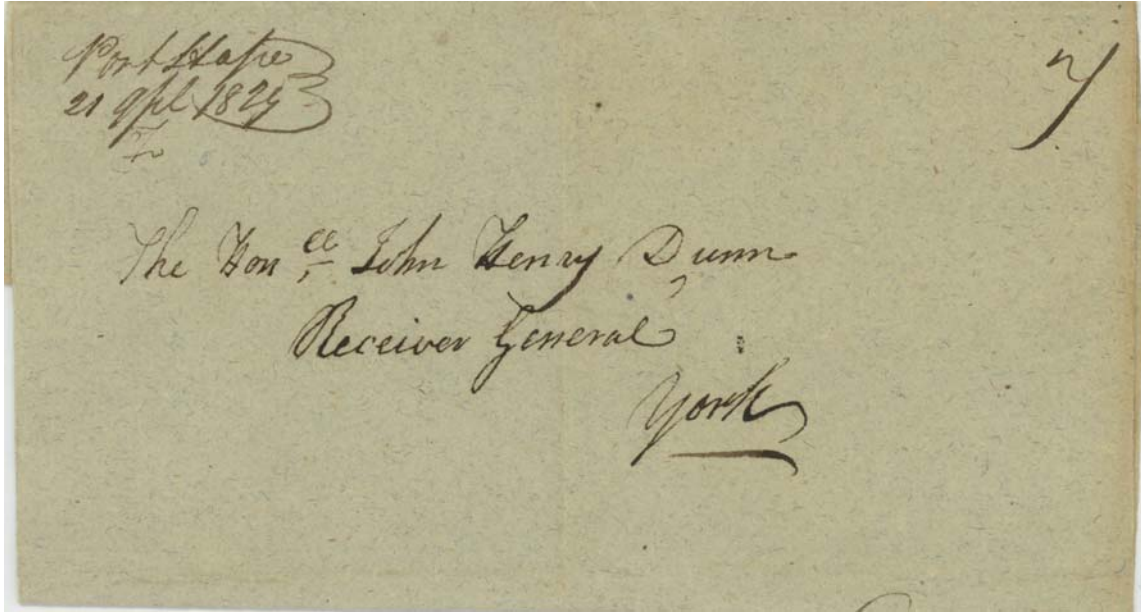 Port Hope
21 Apl 1829
7/
The Hon^ble John Henry Dunn
Receiver General
York